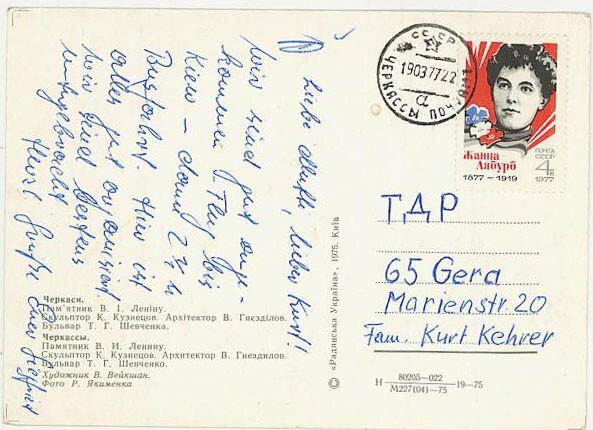 Liebe Mutti, lieber Kurt!
Wir sind gut ange-
kommen. Flug bis
Kiew – dann 2 ½ h
Busfahrt. Hier ist
alles gut organisiert.
Wir sind bestens
untergebracht
Herzl. Grüße Euer Siegfried
Черкаси.
Пам'ятник В. І. Леніну.
Скульптор К. Кузнєцов. Архітектор В. Гнєзділов.
Бульвар Т. Г. Шевченка.
Черкассы.
Памятник В. И. Ленину.
Скульптор К. Кузнецов. Архитектор В. Гнездилов.
Бульвар Т. Г. Шевченко.
Художник В. Вейкшан.
Фото Р. Якименка
© «Радянська Україна», 1975. Київ
СССР
19037722
ЧЕРКАССЫ ПОЧТАМТ
а
Жанна
Лябурб
1877 – 1919
ПОЧТА
СССР
4к
1977
ГДР
65 Gera
Marienstr. 20
Fam. Kurt Kehrer
Н 80205–022
М227(04)–75 19–75